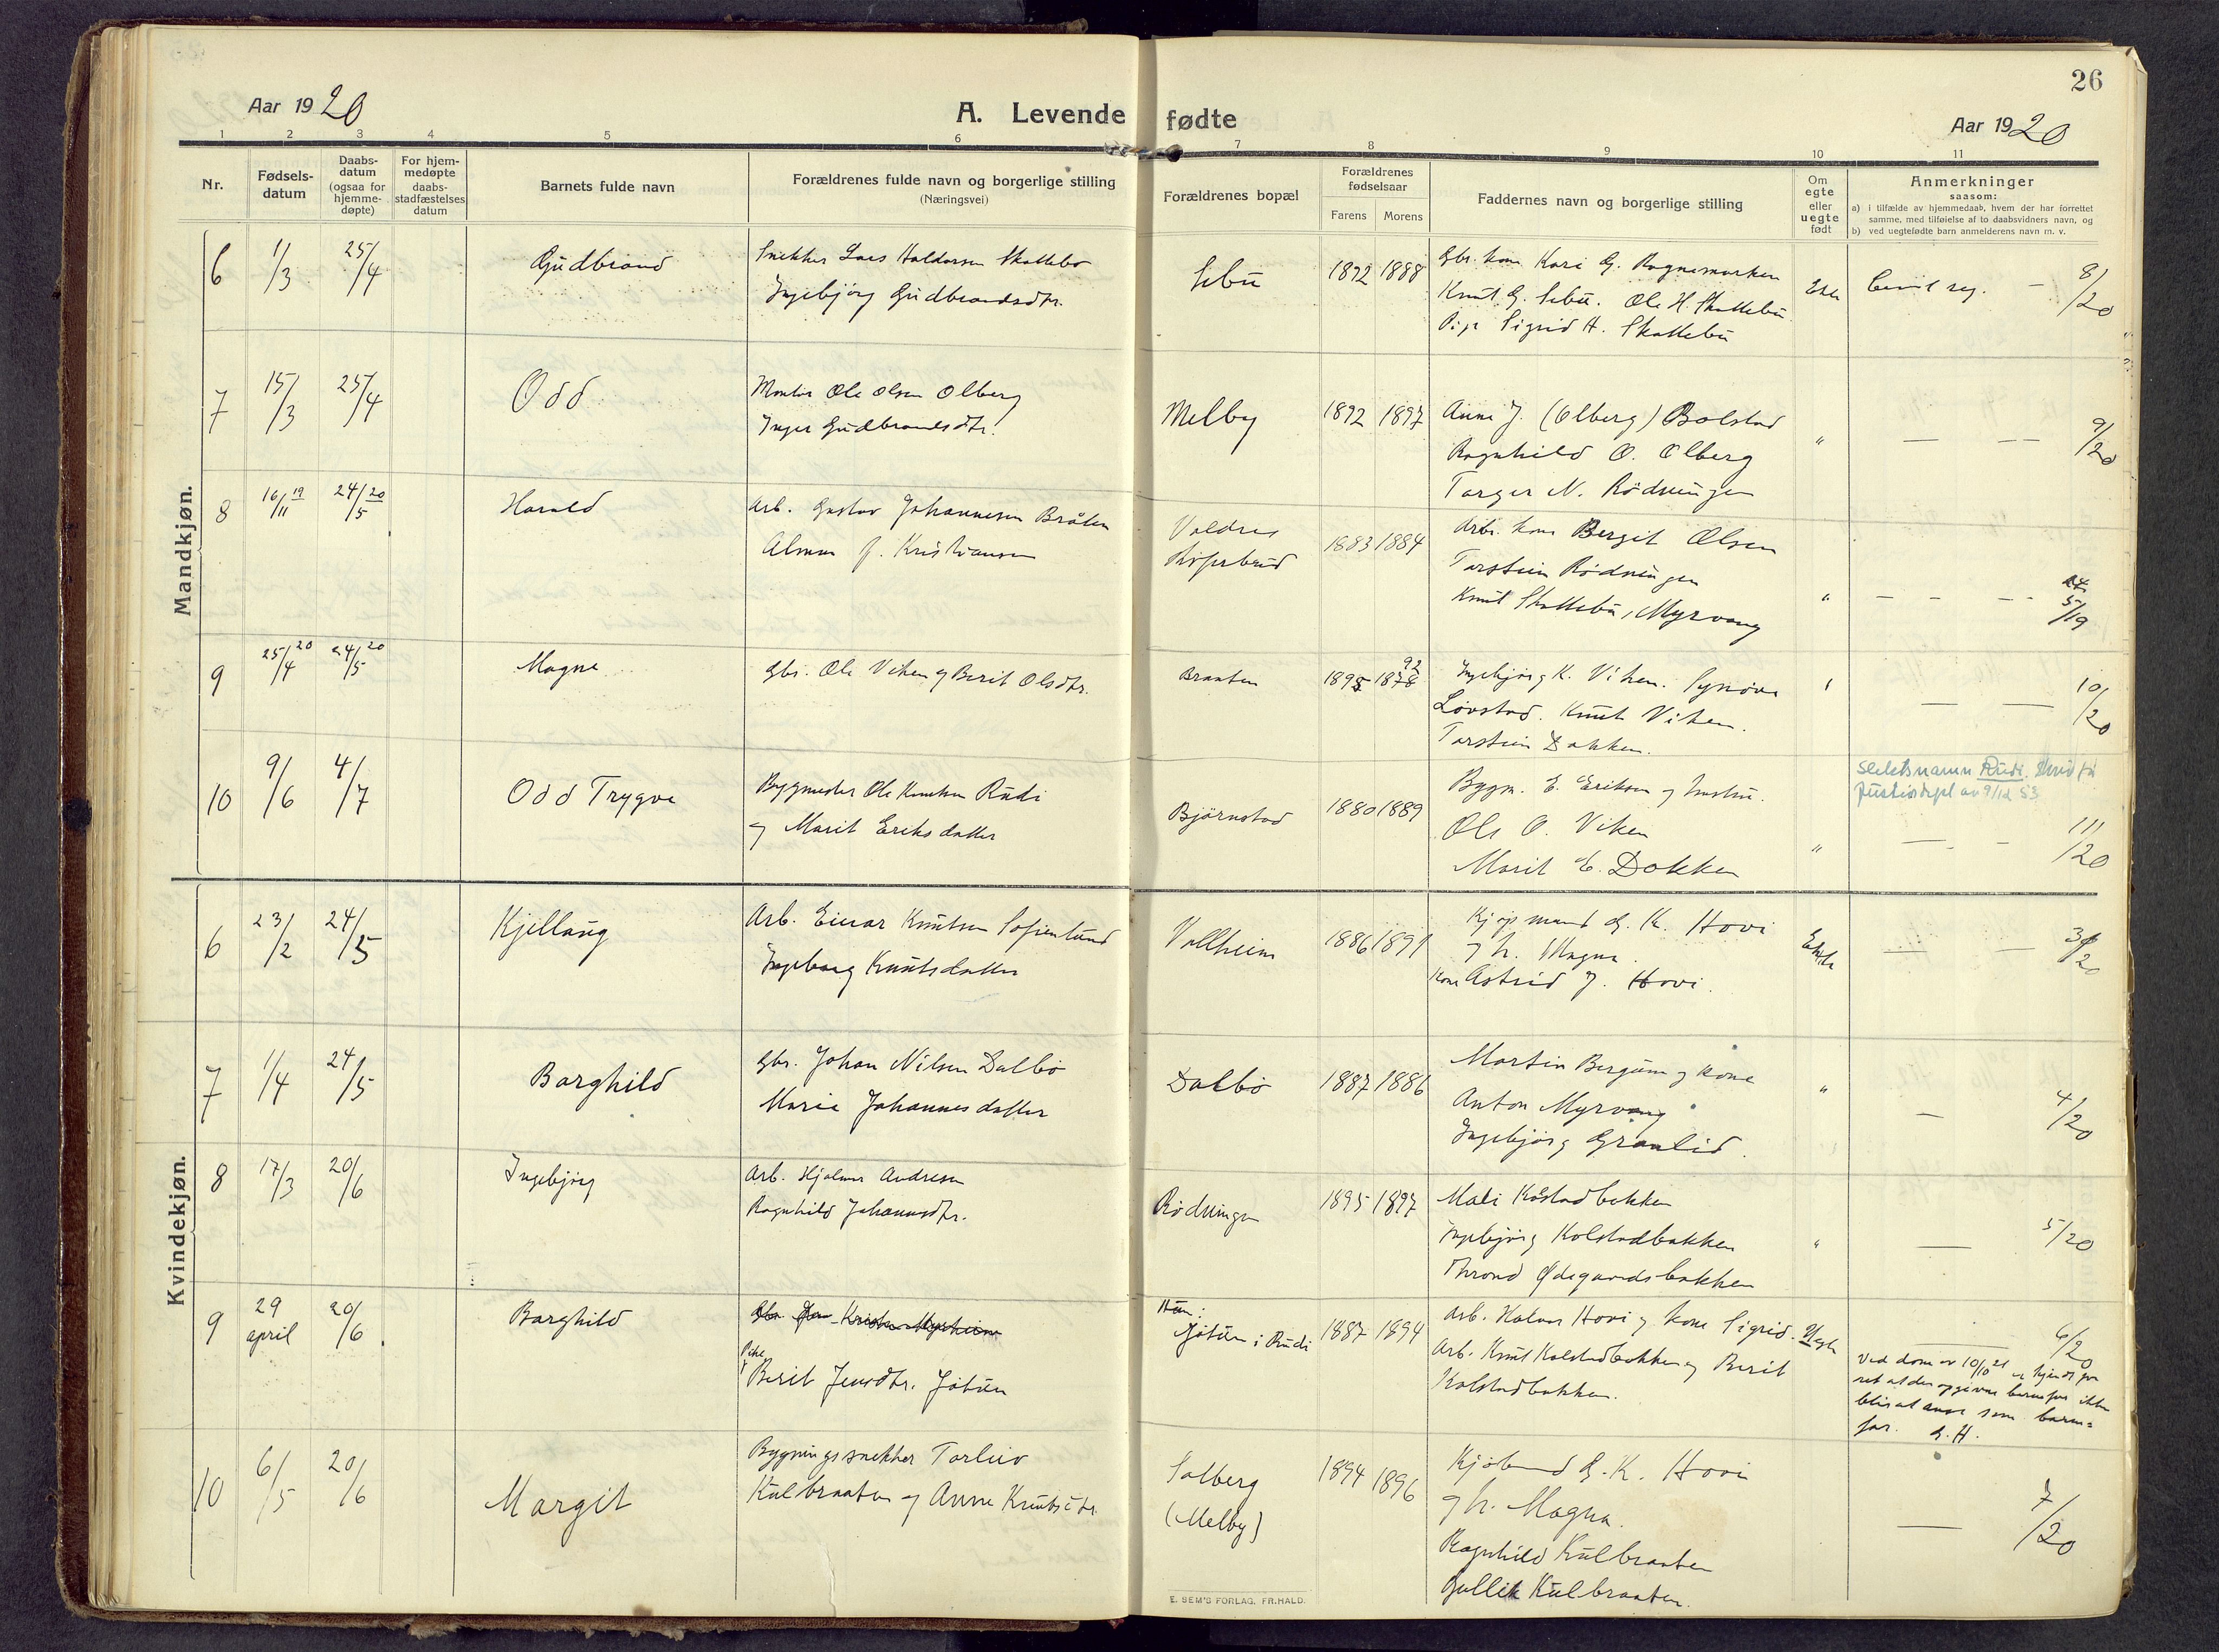 26
Aar 1920
A. Levende fødte
Aar 1920
1 2 3 4 5 6 7 8 9 10 11
Nr.
Fødsels-
datum
Daabs-
datum
(ogsaa for
hjemme-
døpte)
For hjem-
medøpte
daabs-
stadfæstelses
datum
Barnets fulde navn
Forældrenes fulde navn og borgerlige stilling
(Næringsvei)
Forældrenes bopæl
Forældrenes
fødselsaar
Farens Morens
Faddernes navn og borgerlige stilling
Om
egte
eller
uegte
født
Anmerkninger
saasom:
a) i tilfælde av hjemmedaab, hvem der har forrettet
samme, med tilføielse af to daabsvidners navn, og
b) ved uegtefødte barn anmelderens navn m. v.
Mandkjøn.
6 1/3 25/4 Gudbrand
Snekker Lars Haldorsen Skattebo
Ingebjörg Gudbrandsdtr.
Sebu 1892 1888
Gbr. kone Kari G. Rognemarken
Knut G. Sebu. Ole H. Skattebu
Pige Sigrid H. Skattebu
Civil reg. 8/20
7 15/3 25/4 Odd
Montör Ole Olsen Olberg
Inger Gudbrandsdtr.
Melby 1892 1897
Anne J. (Olberg) Bolstad
Ragnhild O. Olberg
Torger N. Rödningen
" — — 9/20
8 16/11 19 24/5 20 Harald
Arb. Gustav Johannesen Bråten
Kristiansen
Valdres
1883 1884
Arb. kone Bergit Olsen
Torstein Rödningen
Knut Skattebu, Myrvang
" — — 5/19
9 25/4 20 24/5 20 Magne
Gbr. Ole Viken og Berit Olsdtr.
Braaten 1895 1878 92
Ingebjörg K. Viken. Synöve
Lövstad. Knut Viken.
Torstein Dokken.
— — 10/20
10 9/6 4/7 Odd Trygve
Bygmester Ole Knutsen Rudi
og Marit Eriksdatter
Björnstad 1880 1889
Bygm. E. Eriksen og hustru.
Ole O. Viken
Marit E. Dokken
"
Slektsnamn Rudi.
av 9/12 53
— - 11/20
Kvindekjøn.
6 23/2 24/5 Kjellaug
Arb. Einar Knutsen Sofienlund
Ingeborg Knutsdatter
Vallheim 1886 1891
Kjøpmand G. K. Hovi
og h. Magna.
Kone Astrid J. Hovi.
Ekte — — 3/20
7 1/4 24/5 Borghild
Gbr. Johan Nilsen Dalbö
Marie Johannesdatter
Dalbö 1887 1886
Martin Bergum og kone
Anton Myrvang
Ingebjörg Grönlid.
" — 4/20
8 17/3 20/6 Ingebjörg
Arb. Hjalmar Andresen
Ragnhild Johannesdtr.
Rödningen 1895 1897
Mali Kolstadbakken
Ingebjörg Kolstadbakken
Thrond Ødegaardsbakken
" — 5/20
9 29 april 20/6 Borghild
Pike
Berit Jensdtr. Jötun
Hun:
Jötun i Rudi 1887 1894
Arb. Halvor Hovi og kone Sigrid.
Arb. Knut Kolstadbakken og Berit
Kolstadbakken.
Uegte — 6/20
Ved dom av 10/10 21 er kjendt for
ret at den opgivne barnefar ikke
blir at anse som barne=
far. G. H.
10 6/5 20/6 Margit
Bygningssnekker Torleiv
Kulbraaten og Anne Knutsdtr.
Solberg
(Melby)
1894 1896
G. K. Hovi
og h. Magna.
Ragnhild Kulbraaten
Gullik Kulbraaten.
— 7/20
E. SEM'S FORLAG. FR.HALD.